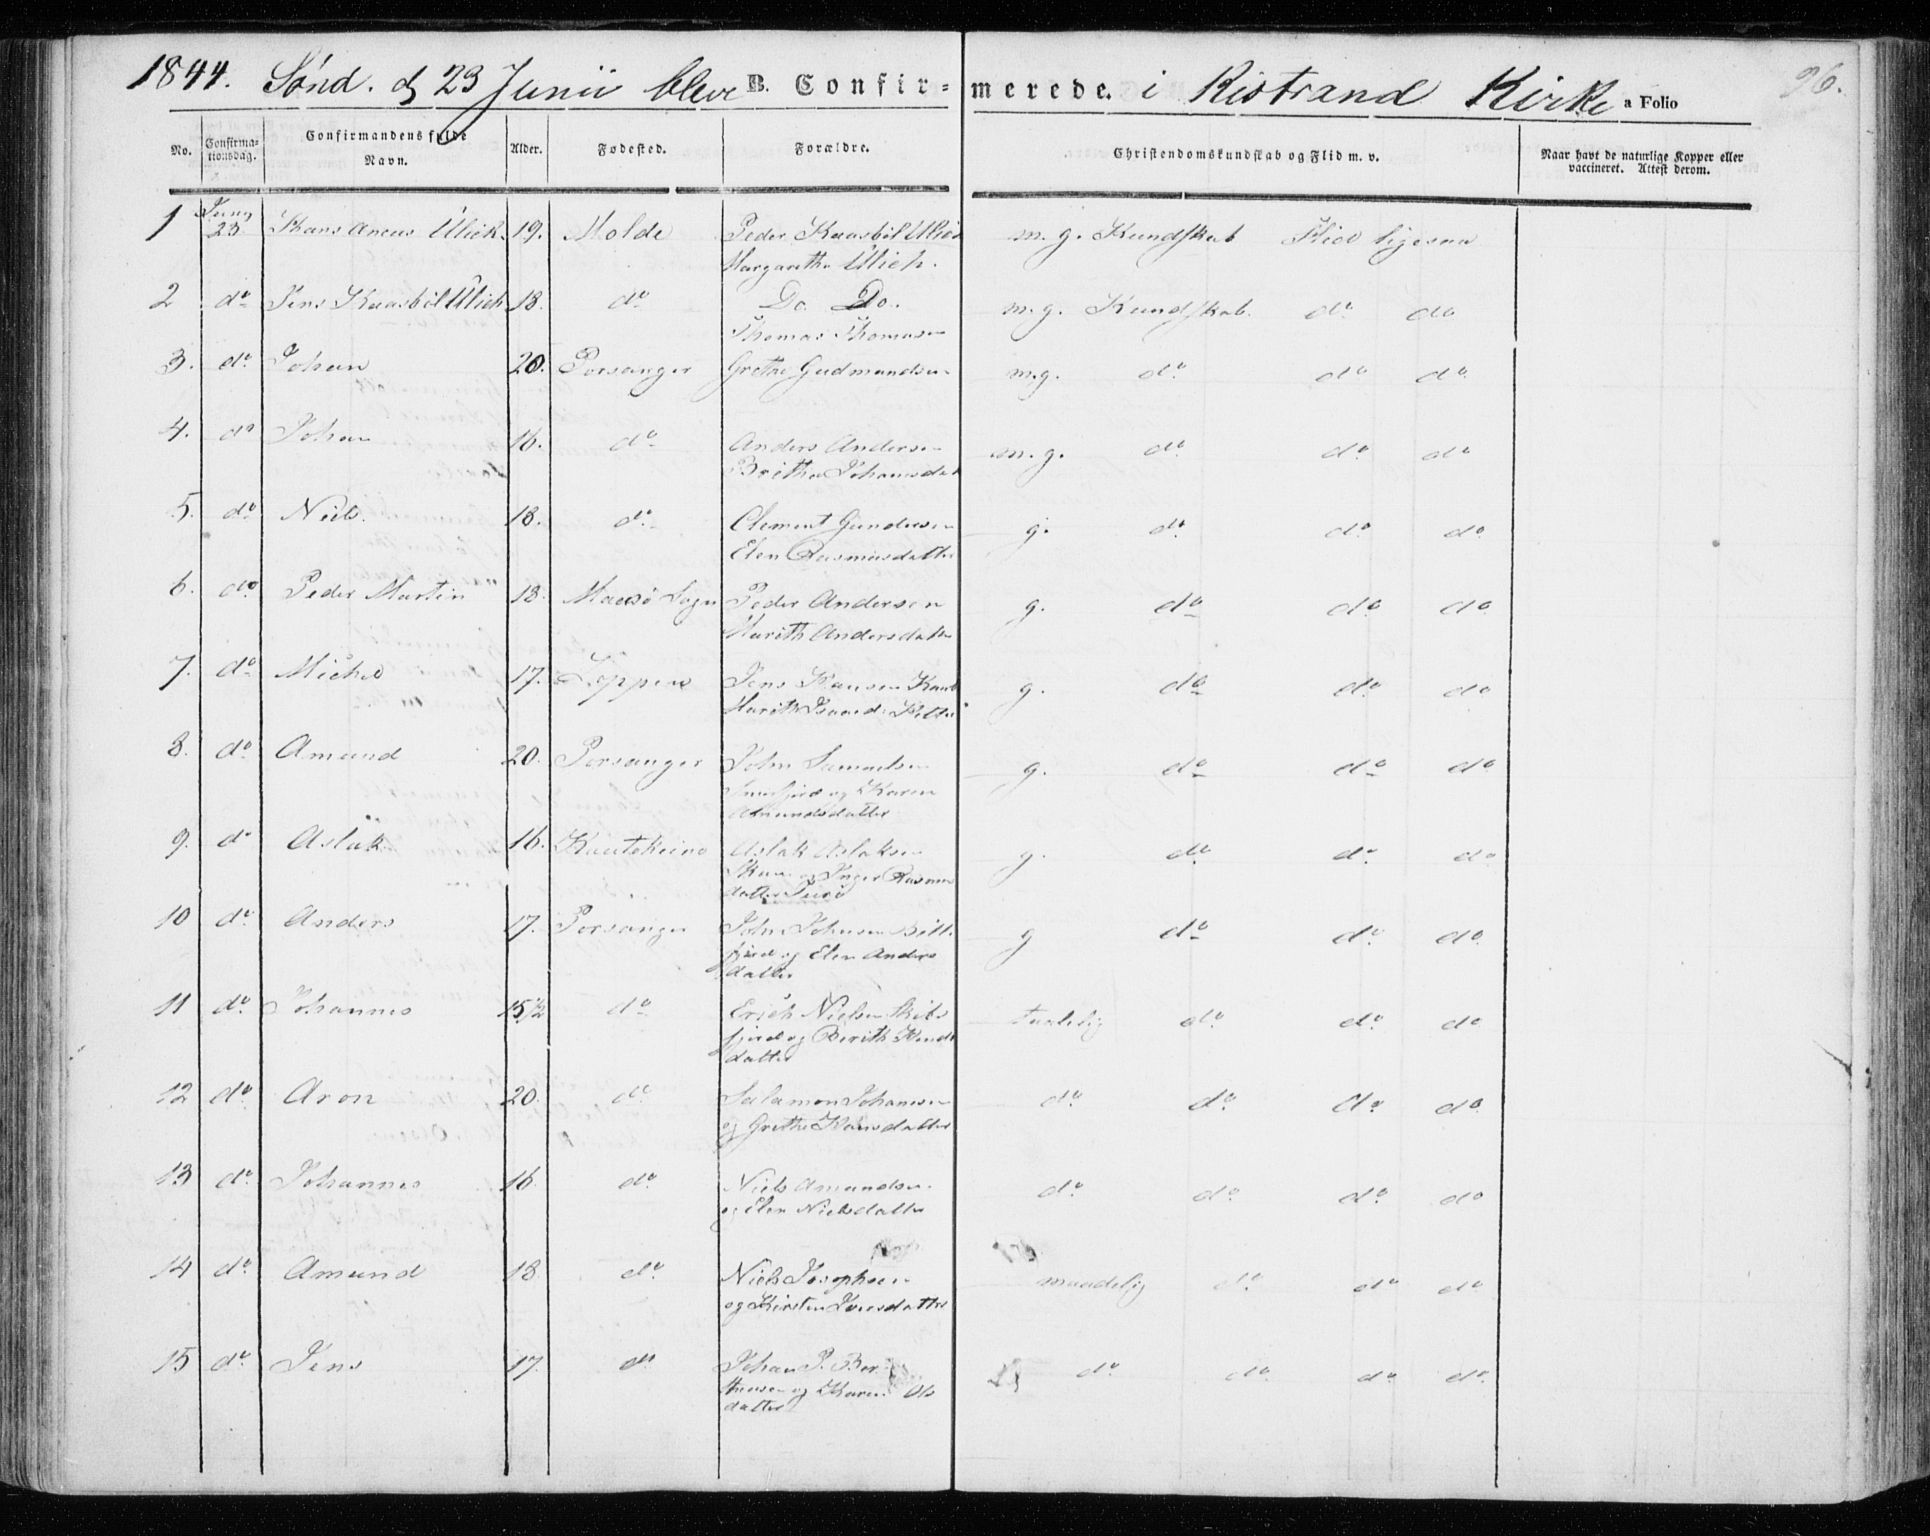 1844. Sønd. d 23 Junii bleve B. Confir= merede. i Kistrand Kirke a Folio 96.
No. Confirma-tionsdag. Confirmandens fulde Navn. Alder. Fødested. Forældre. Christendomskundskab og Flid m. v. Naar havt de naturlige Kopper eller vaccineret. Attest derom.
1 Juny 23 Hans Ulich 19. Molde Peder Kaasböl Ulich m. g. Kundskab Flid ligesaa
Margarethe Ulich.
2 do Jens Kaasböl Ulich 18. do Do. Do. m. g. Kundskab. do do
Thomas Thomasen
3. do Johan 20. Porsanger Grethe Gudmundsen m. g. do do do
4. do Johan 16. do Anders Andersen m. g. do do do
Britha Johannsdat
5. do Niels. 18. do Clement Gundersen g. do do do
Elen Rasmusdatter
6. do Peder Martin 18. Maasö Sogn Peder Andersen g. do do do
Marith Andersdatter
7. do Michel 17. Loppen Jens Hansen g. do do do
Marith
8. do Amund 20. Porsanger John Samuelsen g. do do do
og Karen
Amundsdatter
9. do Aslak 16. Kautokeino Aslak Aslaksen g. do do do
og Inger Rasmus
datter
10 do Anders 17. Porsanger John Johnsen Bill g do do do
fjord og Elen Anders
datter
11 do Johannes 15½ do Erich Nielsen Skibs taalelig do do do
fjord og Berith Hend
datter
12 do Aron 20. do Salamon Johansen do do do do
og Grethe Hansdatter
13 do Johannes 16 do Niels Amundsen do do do do
og Elen Nielsdatter
14 do Amund 18 do Niels Josephsen maadelig do do do
og Kirsten
15 do Jens 17. do Johan P. Ber do do do do
thensen og Karen Ols
datter